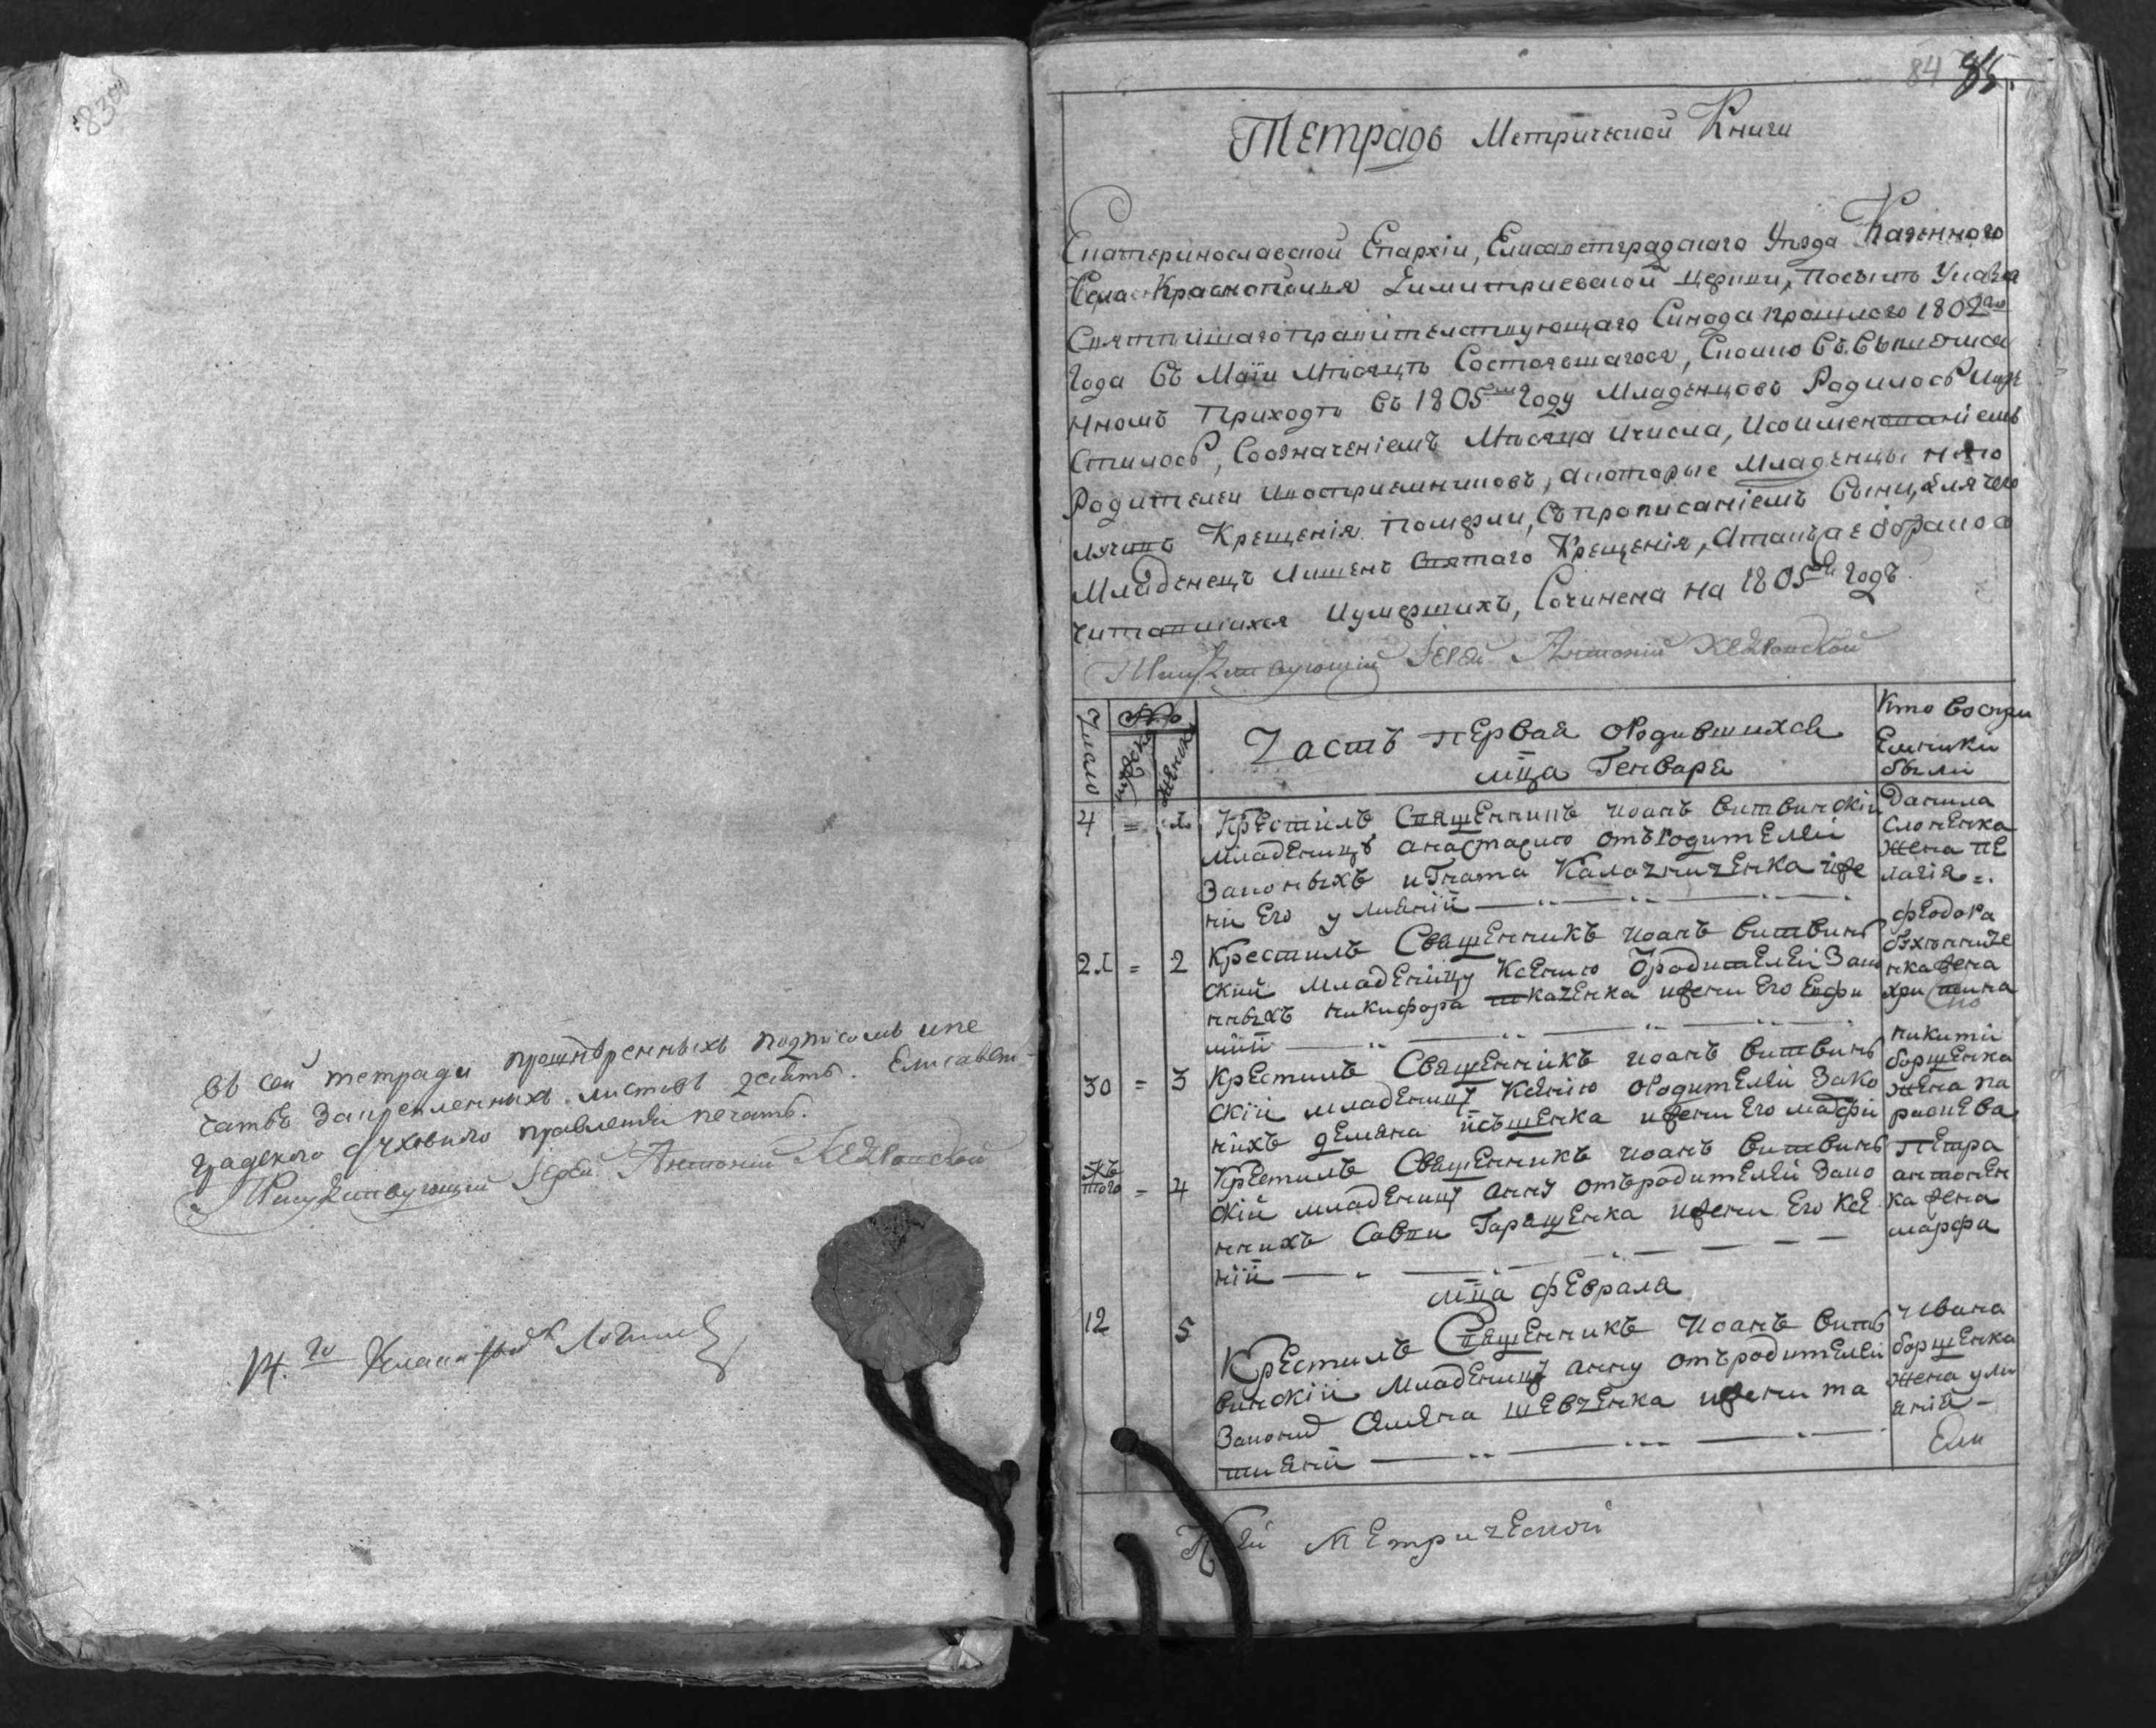 83об
Въ сей тетради прошнуренныхъ подписомъ ипе
чатью закрепленныхъ листовъ десять. Елисавет-
градского духовного правления печать.
Присутствующий Іерей Антоній
84 85.
Тетрадь Метрической Книги
Екатеринославской Епархіи, Елисаветградскаго Уезда Казенного
Села Краснополья Димитриевской церкви, Посылѣ Указа
Святѣйшаго правительствующаго Синода прошлого 1802го
Года Въ Маіи Мѣсяцѣ Состоявшагося, Сколко Въ Вышеписа
нномъ Приходѣ Въ 1805мъ Году Младенцовъ Родилось Икре
стилось, Созначеніемъ Мѣсяца Ичисла, Исоименованіемъ
Родителей Ивосприемниковъ, Акоторые Младенцы непо
лучивъ Крещенія Померли, Съпрописаніемъ Вины, для чего
Младенецъ Лишенъ Святаго Крещенія, Атакъже обракосо
читавшихся Иумершихъ, Сочинена на 1805й Годъ
Присутствующій Іерей Антоній
Число
№
мужеска
женска
Часть первая ородившихся
мца Генваря
Кто воспри
Емники
были
4 = 1 Крестилъ Священникъ иоанъ витвинскій
младеницу анастасию отъ родителей
законыхъ игната Калачниченка иже
ни Его улиянii
Данила
Слоненка
жена пе
лагiя =.
21 = 2 Крестилъ Священникъ иоанъ витвинъ
ский младеницу Ксению Ородителей зако
нныхъ никифора ткаченка ижени Его Евфи
мiи
феодора
нка жена
христина
30 = 3 Крестилъ Священникъ иоанъ витвинъ
скій младеницу Ксенiю Ородителей Зако
нихъ демяна ижени Его марфи
никити
борщенка
жена па
раскева
Къ
того = 4 Крестилъ Священникъ иоанъ витвинъ
скій младеницу анну отъродителей Зако
ннихъ Савки Гаращенка ижени Его Ксе
нiи
Петра
антонен
ка жена
марфа
мца февраля
12 5 Крестилъ Священникъ Иоанъ витъ
винскій Младеницу анну отъродителей
Законнi Омеляна шевченка ижени та
тияни
Ивана
борщенка
жена ули
анiя -
Сей метрической